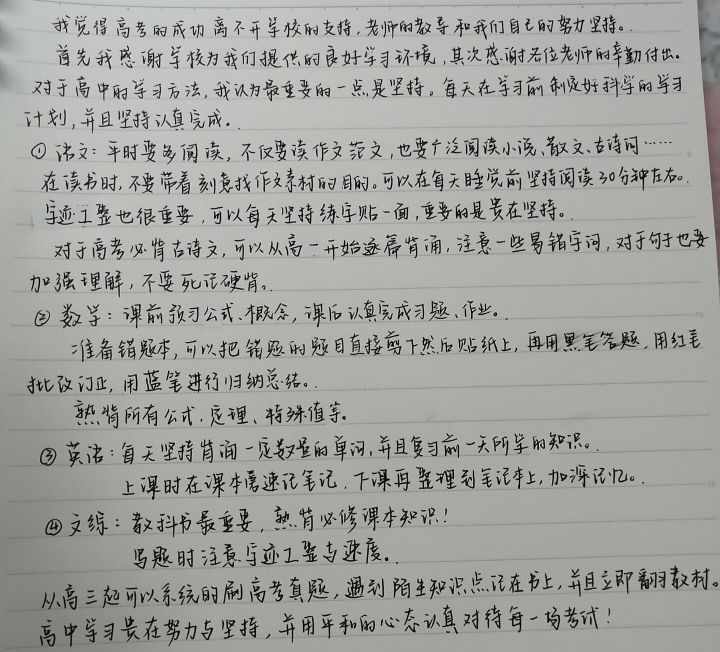 我觉得高考的成功离不开学校的支持,老师的教导和我们自己的努力坚持。
首先我感谢学校为我们提供的良好学习环境,其次感谢各位老师的辛勤付出。
对于高中的学习方法,我认为最重要的一点是坚持。每天在学习前制定好科学的学习
计划,并且坚持认真完成。
①语文:平时要多阅读,不仅要读作文范文,也要广泛阅读小说、散文、古诗词……
在读书时,不要带着刻意找作文素材的目的。可以在每天睡觉前坚持阅读30分钟左右。
字迹工整也很重要,可以每天坚持练字贴一面,重要的是贵在坚持。
对于高考必背古诗文,可以从高一开始逐篇背诵,注意一些易错字词,对于句子也要
加强理解,不要死记硬背。
②数学:课前预习公式、概念,课后认真完成习题、作业。
准备错题本,可以把错题的题目直接剪下然后贴纸上,再用黑笔答题,用红笔
批改订正,用蓝笔进行归纳总结。
熟背所有公式、定理、特殊值等。
③英语:每天坚持背诵一定数量的单词,并且复习前一天所学的知识。
上课时在课本旁速记笔记,下课再整理到笔记本上,加深记忆。
④文综:教科书最重要,熟背必修课本知识!
写题时注意字迹工整与速度。
从高三起可以系统的刷高考真题,遇到陌生知识点记在书上,并且立即翻教材。
高中学习贵在努力与坚持,并用平和的心态认真对待每一场考试!